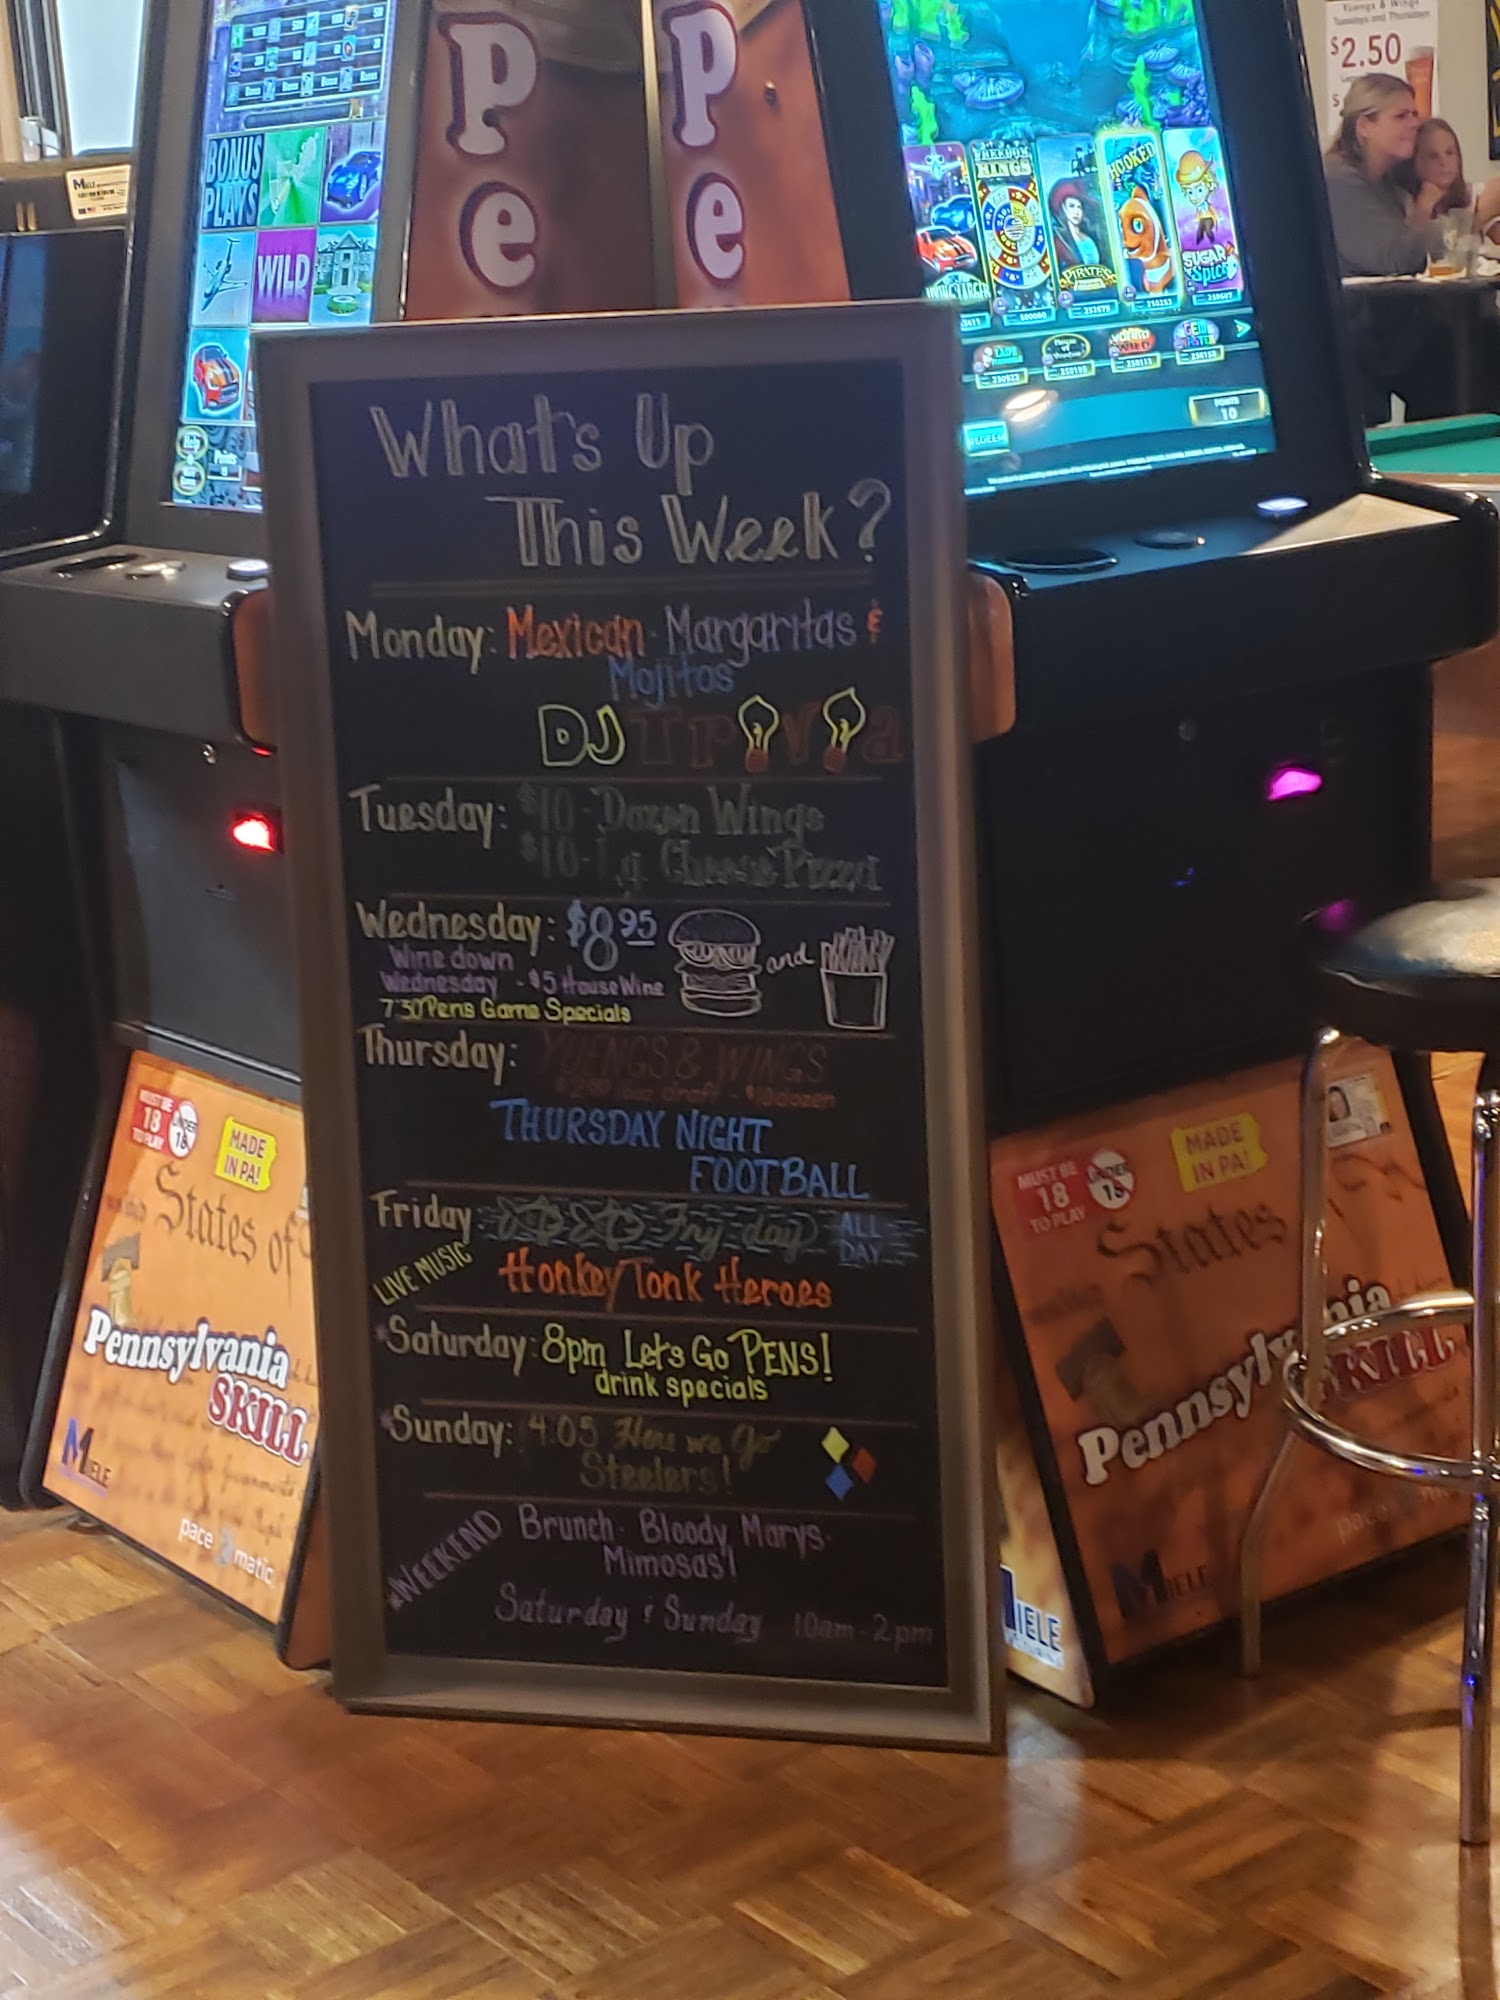 Yuengs & Wings
Tuesdays and Thursdays
$2.50
BONUS
PLAYS
WILD
Pe
Pe
FREEDOM
RINGS
PIRATES
HOOKED
SUGAR
Spice
POINTS
10
REDEEM
Help
Points
What's Up
This Week?
Monday: Mexican · Margaritas &
Mojitos
DJ Trivia
Tuesday: $10 - Dozen Wings
$10 - Lg. Cheese Pizza
Wednesday: $8.95 and
Wine down
Wednesday - $5 House Wine
7:30 Pens Game Specials
Thursday: YUENGS & WINGS
draft - dozen
THURSDAY NIGHT
FOOTBALL
Friday: Fry day ALL
DAY
LIVE MUSIC Honky Tonk Heroes
*Saturday: 8pm Let's Go PENS!
drink specials
*Sunday: 4:05 Here we Go
Steelers!
*WEEKEND Brunch · Bloody Marys ·
Mimosas!
Saturday & Sunday 10am - 2pm
MUST BE
18
TO PLAY
UNDER
18
MADE
IN PA!
States of
Pennsylvania
SKILL
MIELE
pace matic
MUST BE
18
TO PLAY
UNDER
18
MADE
IN PA!
States
Pennsylvania
SKILL
MIELE
MIELE